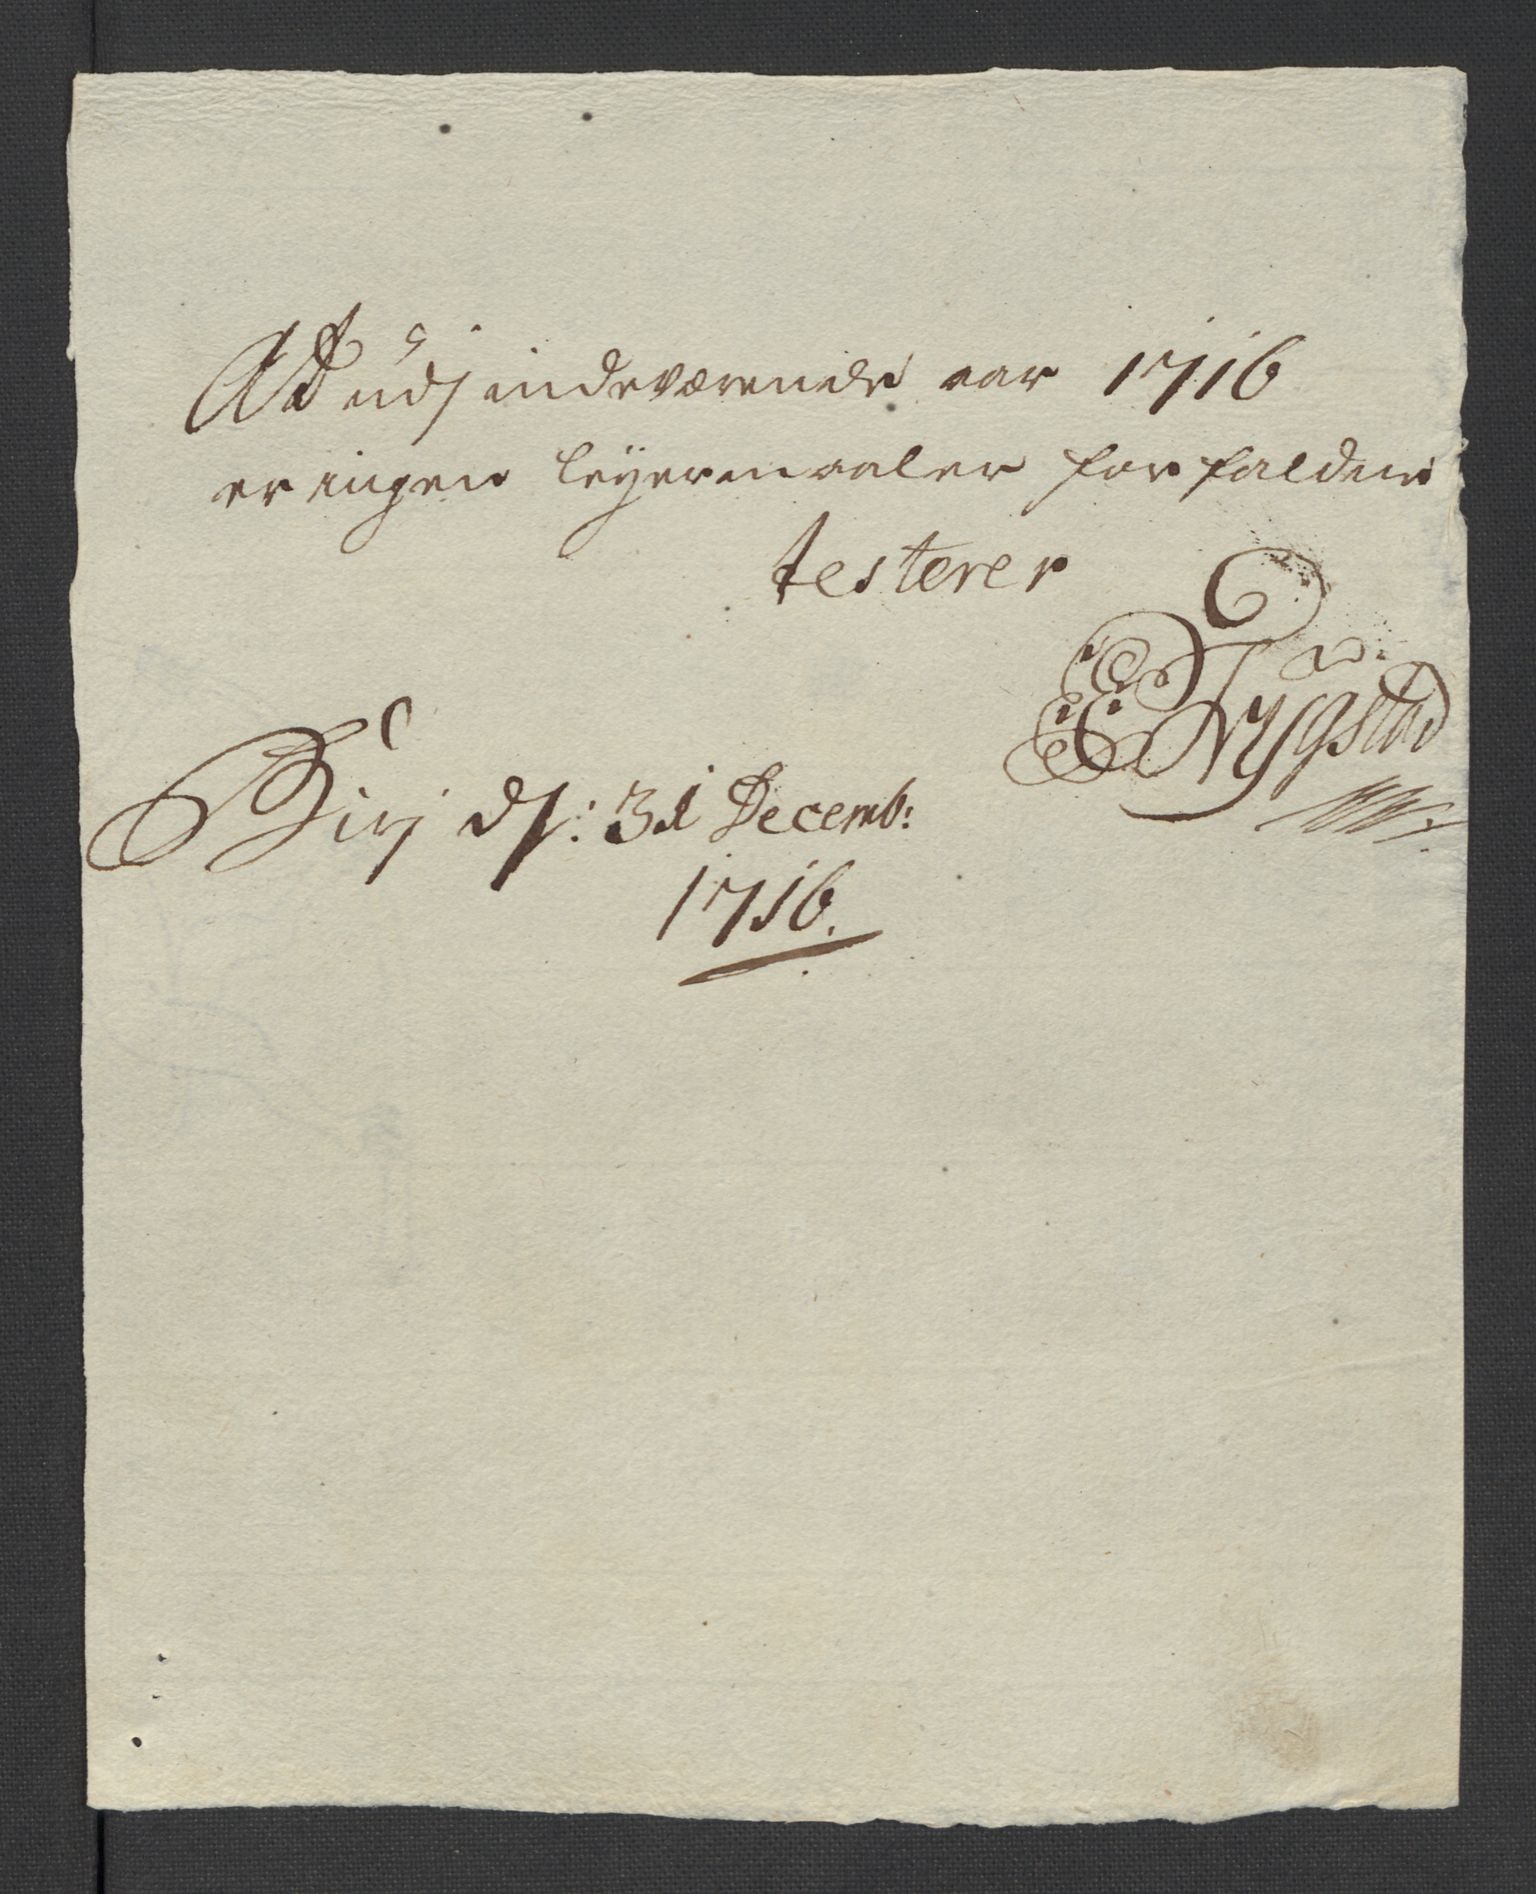 At udj indeværende aar 1716
er ingen leyermaaler forfalden
testerer
E Trygstad
Birj dj: 31 Decemb:
1716.